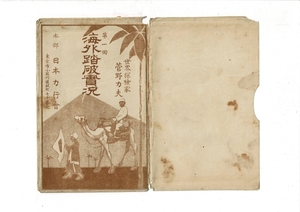 第一回
海外踏破實況
世界探險家
菅野力夫
本部 日本力行會